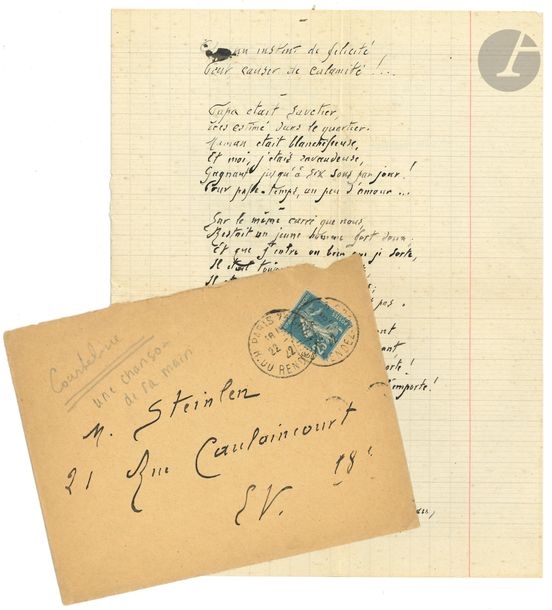 un instant de félicité
Peut causer de calamité !...
Papa était savetier,
Très estimé dans le quartier.
Maman était blanchisseuse,
Et moi, j'étais ravaudeuse,
Gagnant jusqu'à six sous par jour !
Pour passe-temps, un peu d'amour ...
Sur le même carré que nous,
Restait un jeune homme fort doux.
Et que j'entre ou bien que je sorte,
Il était
pas.
emporte !
Courteline
une chanson
de sa main
PARIS
22
DU RENDEZ
25
M. Steinlen
21 Rue Caulaincourt
18e
E.V.